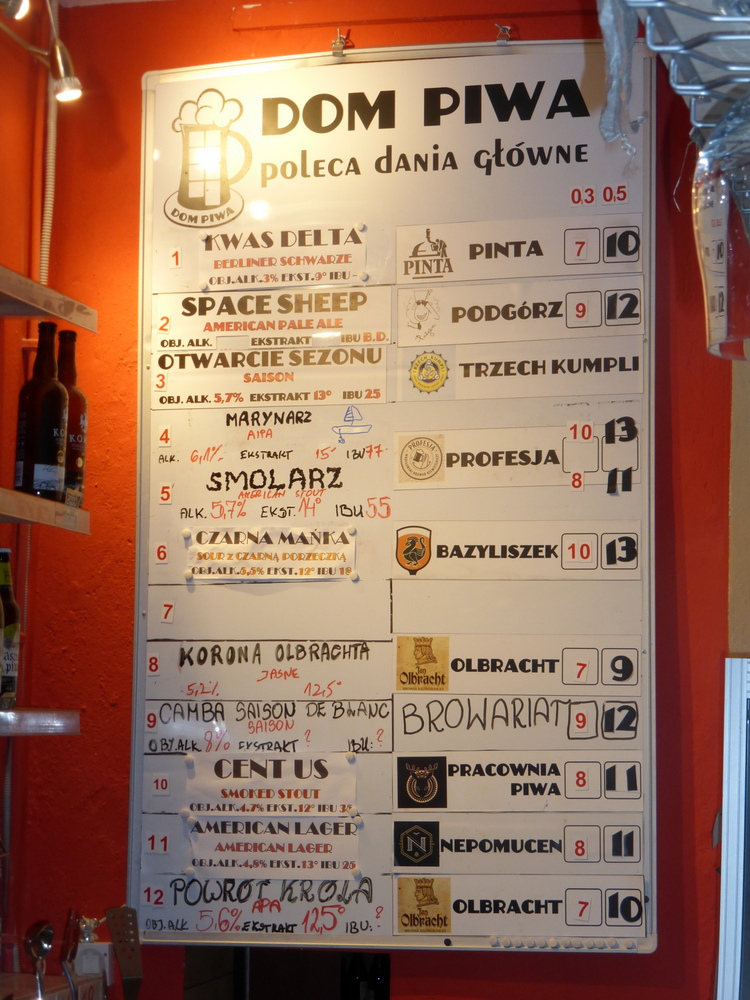 DOM PIWA
poleca dania główne
DOM PIWA
0,3 0,5
1 KWAS DELTA
BERLINER SCHWARZE
OBJ.ALK.3% EKST.9° IBU -
PINTA PINTA 7 10
2 SPACE SHEEP
AMERICAN PALE ALE
OBJ. ALK. EKSTRAKT IBU B.D.
PODGÓRZ 9 12
3 OTWARCIE SEZONU
SAISON
OBJ. ALK. 5,7% EKSTRAKT 13° IBU 25
TRZECH KUMPLI
4 MARYNARZ
AIPA
ALK. 6,1% EKSTRAKT 15° IBU 77
10 13
PROFESJA PROFESJA
5 SMOLARZ
AMERICAN STOUT
ALK. 5,7% EKST. 14° IBU 55
8 11
6 CZARNA MAŃKA
SOUR Z CZARNĄ PORZECZKĄ
OBJ.ALK.5,5% EKST.12° IBU 18
BAZYLISZEK 10 13
7
8 KORONA OLBRACHTA
JASNE
5,2% 12,5°
Jan Olbracht OLBRACHT 7 9
9 CAMBA SAISON DE BLANC
SAISON
OBJ.ALK 8% EKSTRAKT ? IBU: ?
BROWARIAT 9 12
10 CENT US
SMOKED STOUT
OBJ.ALK.4.7% EKST.12° IBU 35
PRACOWNIA PIWA 8 11
11 AMERICAN LAGER
AMERICAN LAGER
OBJ.ALK.4,8% EKST.13° IBU 25
N NEPOMUCEN 8 11
12 POWRÓT KRÓLA
APA
OBJ. ALK 5,6% EKSTRAKT 12,5° IBU: ?
Jan Olbracht OLBRACHT 7 10